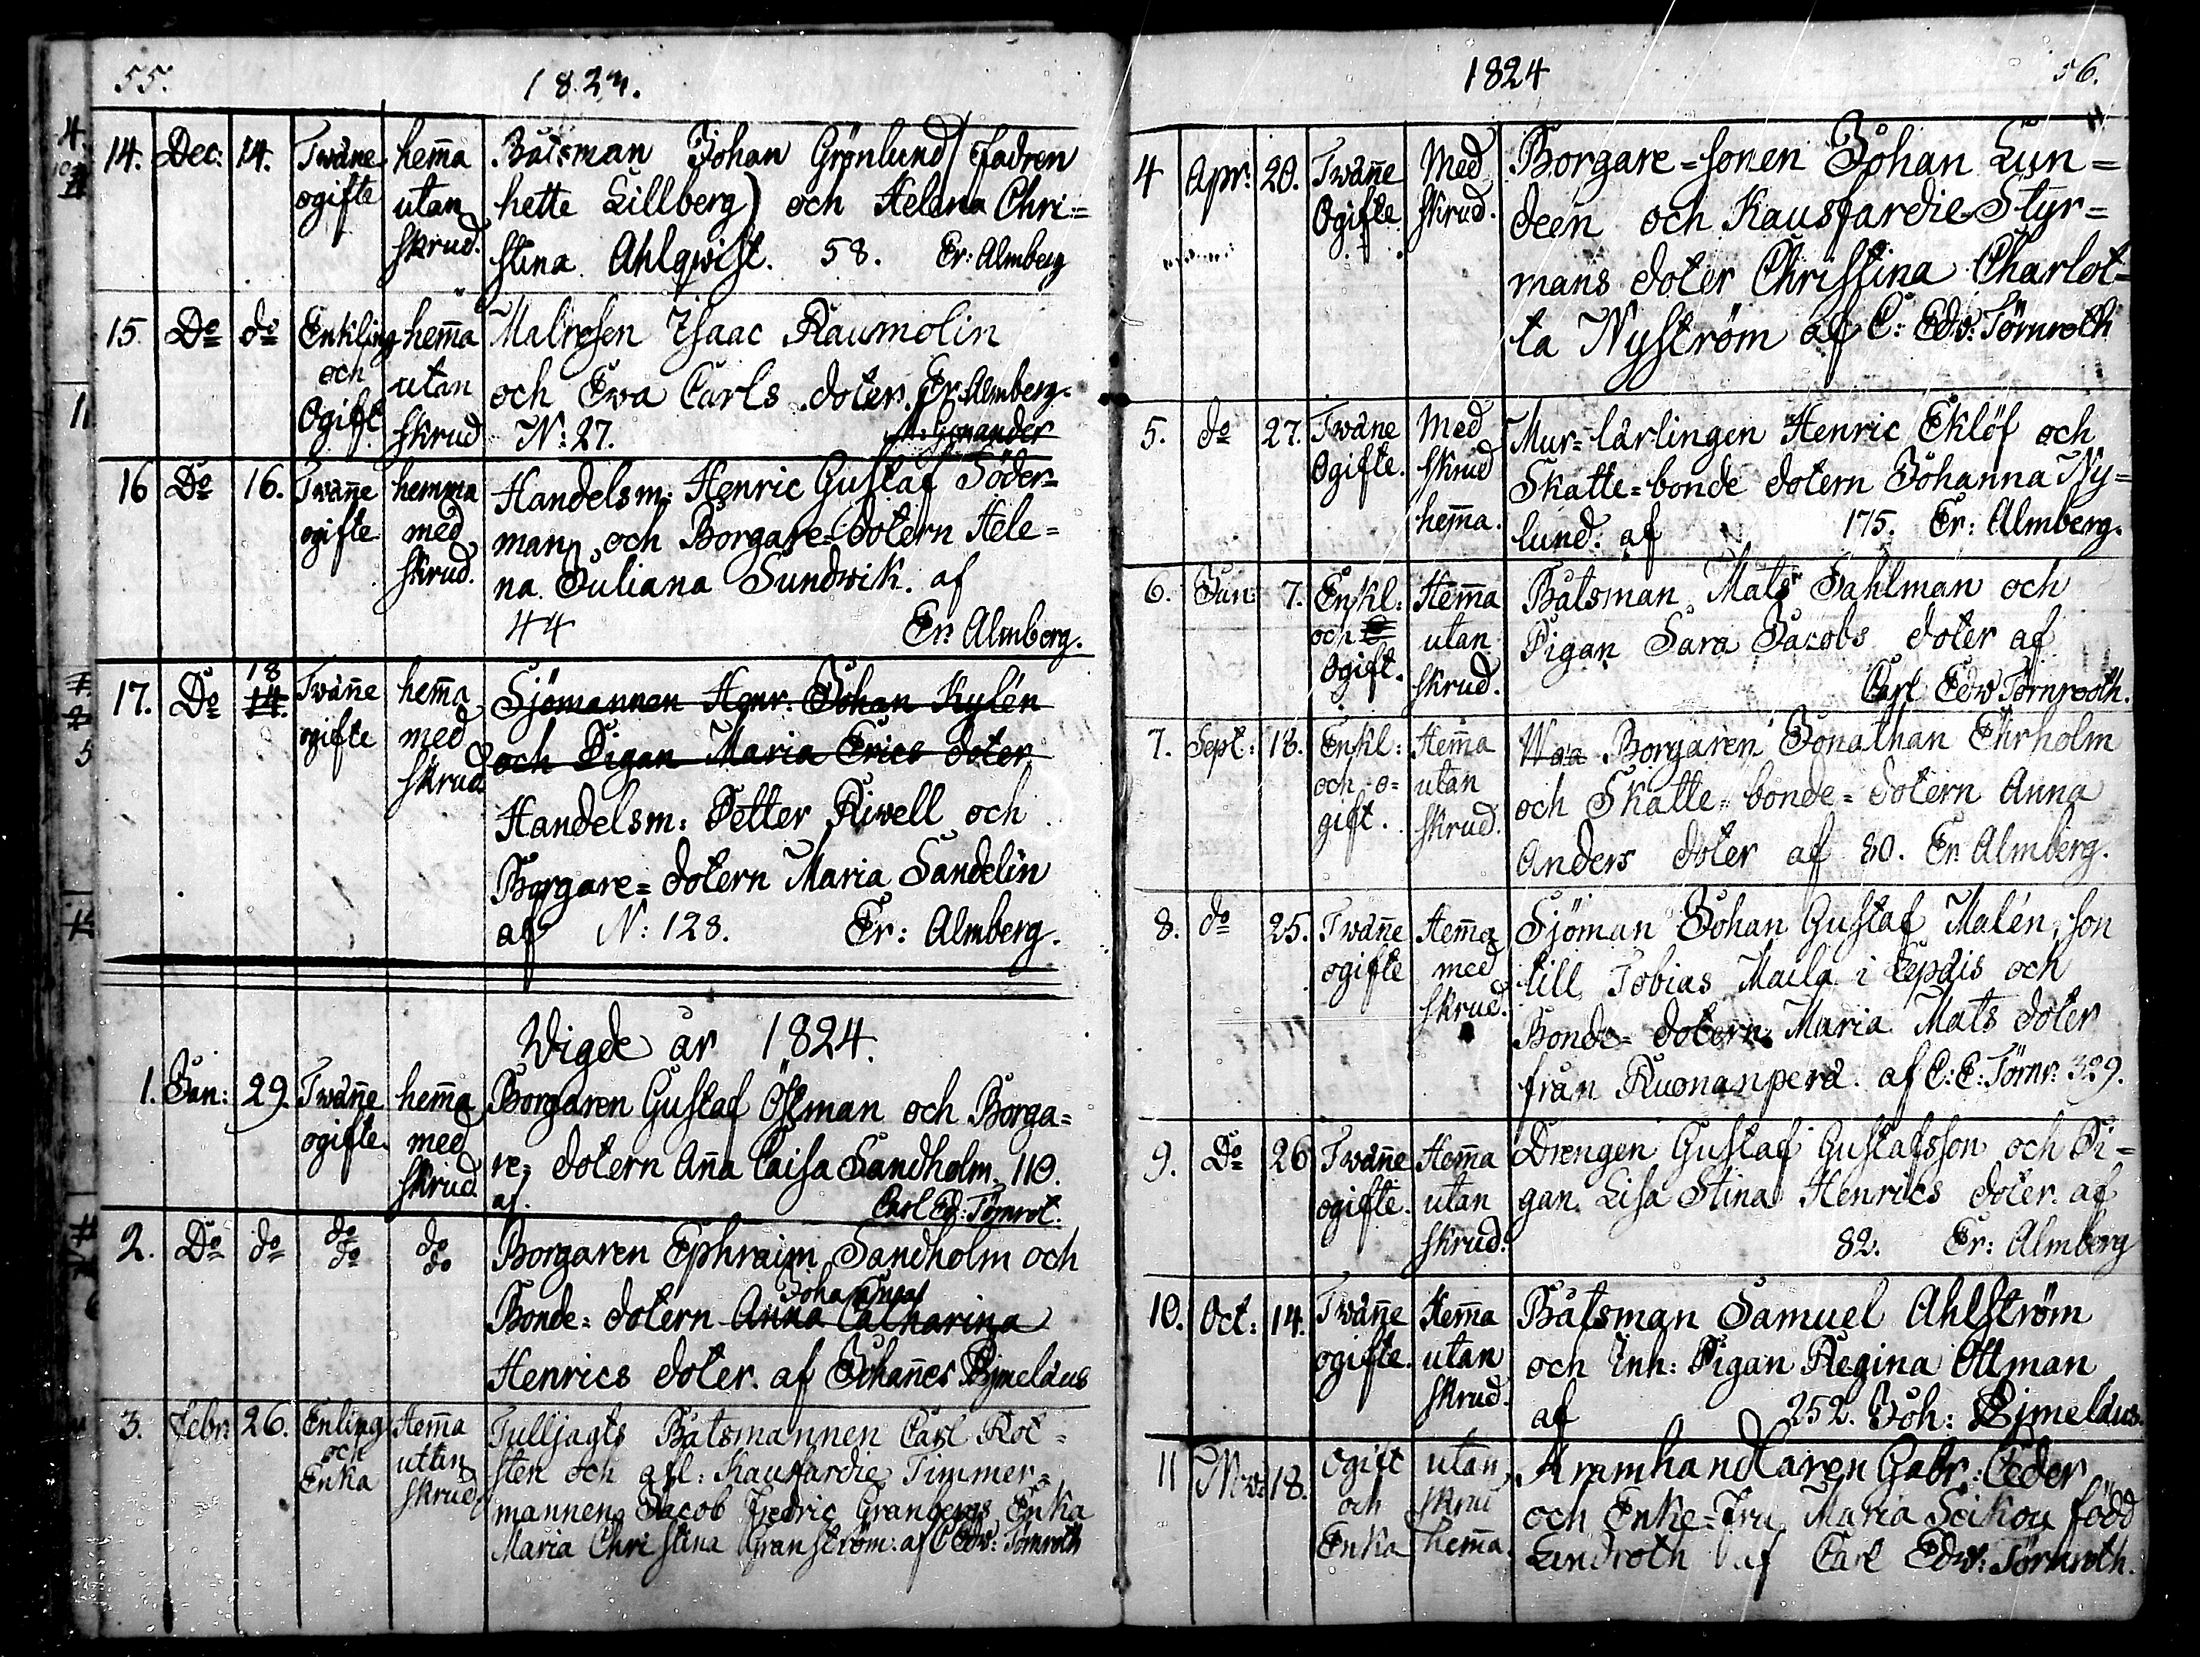 55.
1823.
14. Dec: 14. Twäne ogifte hem̄a utan skrud.
Båtsman Johan Grönlund (fadren
hette Lillberg) och Helena Chri=
stina Ahlqwist. 58. Er: Almberg
15. Do do Enkling och Ogift hem̄a utan skrud
Matrosen Isaac Raumolin
och Ewa Carls doter. Er. Almberg.
N: 27.
16 Do 16. Twän̄e ogifte hemma med skrud.
Handelsm: Henric Gustaf Söder=
man och Borgare=dotern Hele=
na Juliana Sundwik. af
44 Er: Almberg.
17. Do 18 14. Twän̄e ogifte hem̄a med skrud
Sjömannen Henr: Johan Kylén
och Pigan Maria Erics doter
Handelsm: Petter Riwell och
Borgare=dotern Maria Sandelin
af N: 128. Er: Almberg.
Wigde år 1824.
1. Jan: 29. Twän̄e ogifte hem̄a med skrud.
Borgaren Gustaf Östman och Borga=
re=dotern An̄a Caisa Sandholm. 110.
af. Carl Ed: Törnrot.
2. Do do do do do do
Borgaren Ephraim Sandholm och
Johanna
Bonde=dotern Anna Catharina
Henrics doter. af Johan̄es Bjmelæus
3. Febr: 26. Enling och Enka Hem̄a uttan skrud
Tulljagts Båtsmannen Carl Rot=
sten och afl: Kaufardie Timmer=
mannens Jacob Fredric Granbergs Enka
Maria Christina Granström: af C Edv: Törnroth
1824
56.
4 Apr: 20. Twän̄e Ogifte Med skrud.
Borgare=sonen Johan Lun=
deen och Kausfardie Styr=
mans doter Christina Charlot=
ta Nyström af C: Edv: Törnroth
5. do 27. Twäne Ogifte. Med skrud hem̄a.
Mur=lärlingen Henric Eklöf och
Skatte=bonde dotern Johanna Ny=
lund. af 175. Er: Almberg.
6. Jun: 7. Enkl: och Ogift. Hem̄a utan skrud.
Båtsman Mats Sahlman och
Pigan Sara Jacobs doter af
Carl Edw Törnrooth.
7. Sept: 18. Enkl: och o=gift. Hem̄a utan skrud.
Borgaren Jonathan Ehrholm
och Skatte=bonde=dotern Anna
Anders doter af 80. Er. Almberg.
8. do 25. Twän̄e ogifte Hem̄a med skrud.
Sjöman Johan Gustaf Malén, son
till Tobias Maila i Lepäis och
Bonde=dotern Maria Mats doter
från Ruonanperä. af C: E: Törnr: 329.
9. Do 26 Twän̄e ogifte. Hem̄a utan skrud.
Drengen Gustaf Gustafsson och Pi=
gan Lisa Stina Henrics doter. af
82. Er: Almberg
10. Oct: 14. Twän̄e ogifte. Hem̄a utan skrud.
Båtsman Samuel Ahlström
och Inh: Pigan Regina Öttman
af 252. Joh: Bjmelæus.
11 Nov: 18. Ogift och Enka utan skrud hem̄a.
Kramhandlaren Gabr: Ceder
och Enke=Fru Maria Scikou född
Lindroth af Carl Edw: Törnroth.